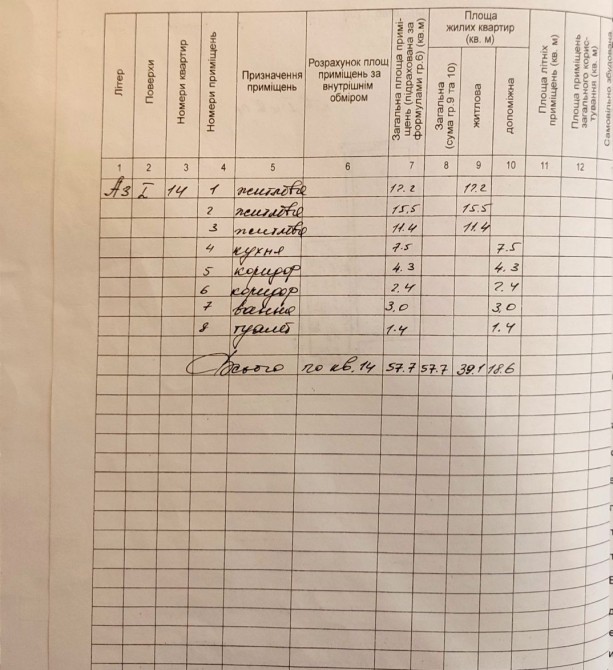 Літер
Поверхи
Номери квартир
Номери приміщень
Призначення приміщень
Розрахунок площ приміщень за внутрішнім обміром
Загальна площа приміщень (підрахована за формулами гр.6) (кв.м)
Площа жилих квартир (кв. м)
Загальна (сума гр.9 та 10)
житлова
допоміжна
Площа літніх приміщень (кв. м)
Площа приміщень загального користування (кв. м)
Самовільно збудована
1 2 3 4 5 6 7 8 9 10 11 12
Аз I 14 1 житлова 12.2 12.2
2 житлова 15.5 15.5
3 житлова 11.4 11.4
4 кухня 7.5 7.5
5 коридор 4.3 4.3
6 коридор 2.4 2.4
7 ванна 3.0 3.0
8 туалет 1.4 1.4
Всього по кв. 14 57.7 57.7 39.1 18.6